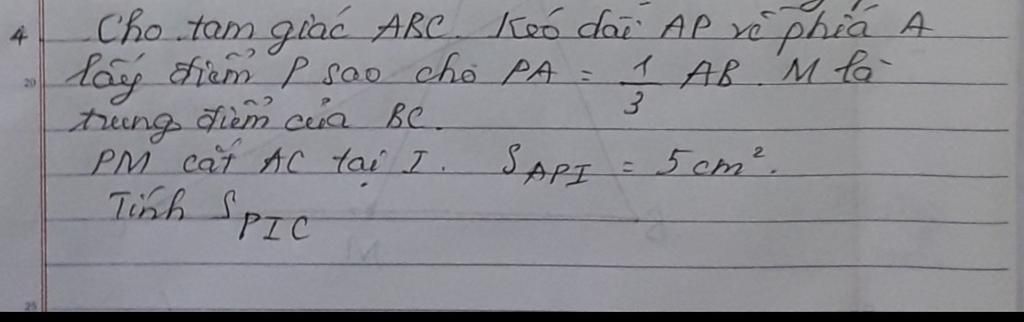 4 Cho tam giác ABC. Kéo dài AP về phía A
20 lấy điểm P sao cho PA = 1/3 AB. M là
trung điểm của BC.
PM cắt AC tại I. S_API = 5 cm².
Tính S_PIC
25